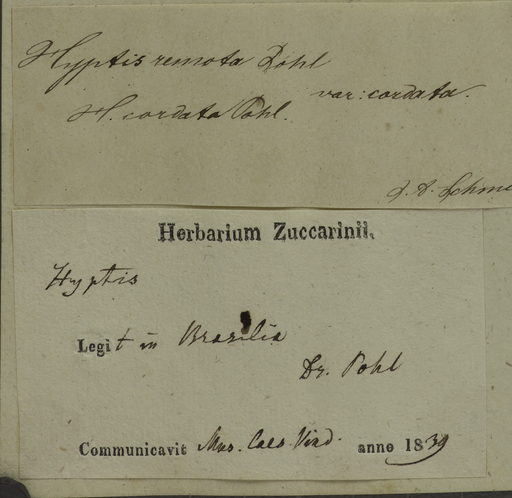 Hyptis remota Pohl
var: cordata.
H. cordata Pohl.
J. A. Schmi
Herbarium Zuccarinii.
Hyptis
Legit in Brasilia
Dr. Pohl
Communicavit Mus. Caes. Vind. anno 1839